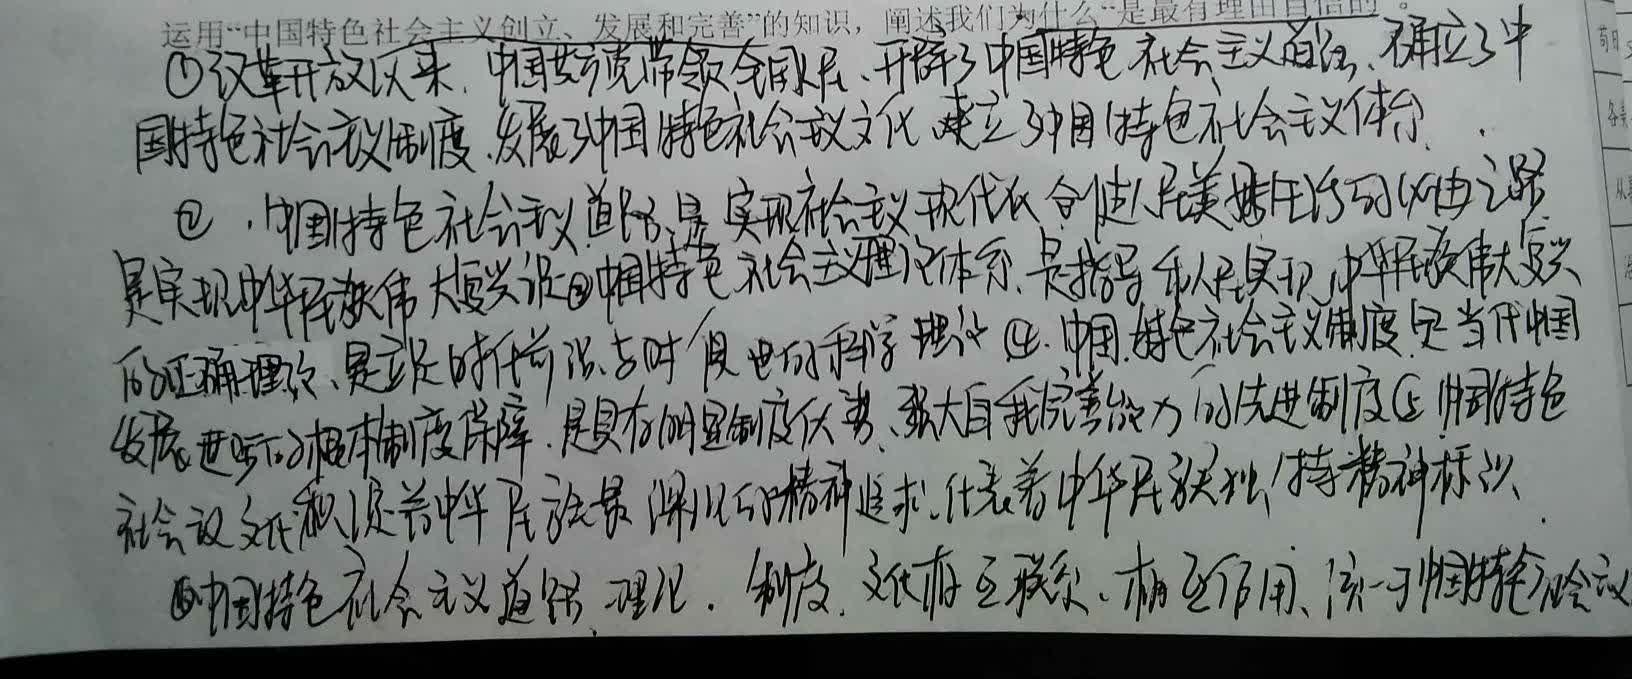 运用“中国特色社会主义创立、发展和完善”的知识，阐述我们为什么“是最有理由自信的”。
①改革开放以来,中国共产党带领全国人民、开辟了中国特色社会主义道路、确立了中
国特色社会主义制度、发展了中国特色社会主义文化 建立了中国特色社会主义体系.
②.中国特色社会主义道路是实现社会主义现代化 创造人民美好生活的必由之路
是实现中华民族伟大复兴 ③中国特色社会主义理论体系、是指导 人民实现中华民族伟大复兴
的正确理论、是立足时代前沿、与时俱进的科学理论 ④.中国特色社会主义制度是当代中国
发展进步的根本制度保障、是具有明显制度优势、强大自我完善能力的先进制度⑤中国特色
社会主义文化积淀着中华民族最深沉的精神追求、代表着中华民族独特精神标识、
⑥中国特色社会主义道路 理论、制度、文化相互联系、相互作用、统一于中国特色社会主义